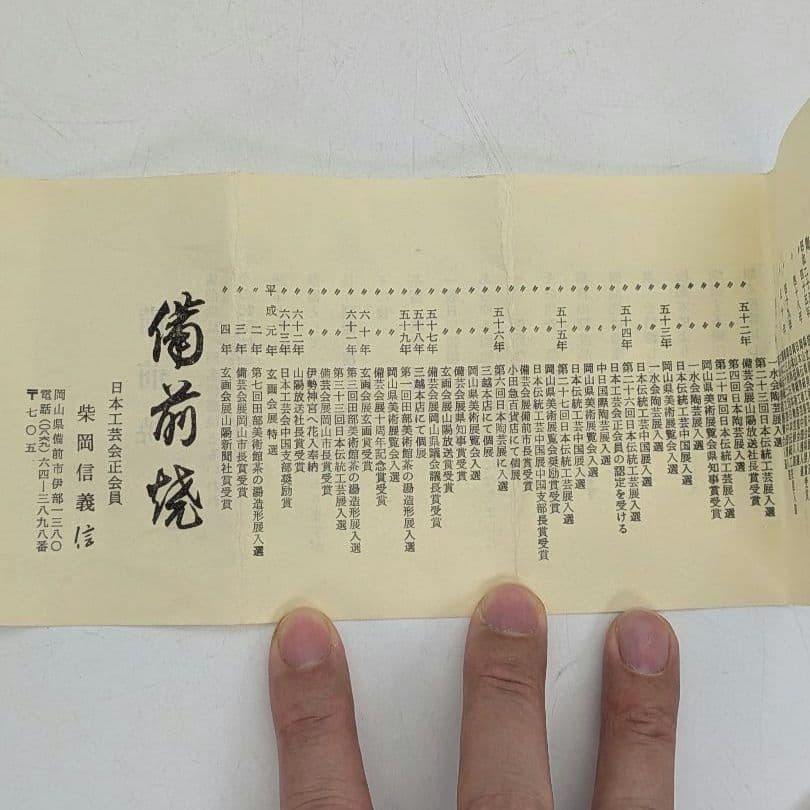 〃 〃 一水会陶芸展入選
〃 〃 第二十三回日本伝統工芸展入選
〃 五十二年 備芸会展山陽放送社長賞受賞
〃 〃 第四回日本陶芸展入選
〃 〃 第二十四回日本伝統工芸展入選
〃 〃 岡山県美術展覧会県知事賞受賞
〃 〃 一水会陶芸展入選
〃 〃 日本伝統工芸中国展入選
〃 五十三年 岡山県美術展覧会入選
〃 〃 一水会陶芸展入選
〃 〃 日本伝統工芸中国展入選
〃 五十四年 第二十六回日本伝統工芸展入選
〃 〃 日本工芸会正会員の認定を受ける
〃 〃 中国県陶芸展入選
〃 〃 岡山県美術展覧会入選
〃 〃 日本伝統工芸中国展入選
〃 五十五年 第二十七回日本伝統工芸展入選
〃 〃 岡山県美術展覧会奨励賞受賞
〃 〃 日本伝統工芸中国展中国支部長賞受賞
〃 〃 備芸会展備前市長賞受賞
〃 〃 小田急百貨店にて個展
〃 五十六年 第六回日本陶芸展に入選
〃 〃 三越本店にて個展
〃 〃 岡山県美術展覧会入選
〃 〃 備芸会展県知事賞受賞
〃 〃 玄画会展山陽放送賞受賞
〃 五十七年 備芸会展岡山県議会議長賞受賞
〃 五十八年 三越本店にて個展
〃 五十九年 第一回田部美術館茶の湯造形展入選
〃 〃 岡山県美術展覧会入選
〃 〃 備芸会展十周年記念賞受賞
〃 六十年 玄画会展玄画賞受賞
〃 六十一年 第三回田部美術館茶の湯造形展入選
〃 〃 第三十三回日本伝統工芸展入選
〃 〃 備芸会展岡山市長賞受賞
〃 〃 伊勢神宮へ花入奉納
〃 六十二年 山陽放送社長賞受賞
〃 六十三年 日本工芸会中国支部奨励賞
平成元年 玄画会展特選
〃 二年 第七回田部美術館茶の湯造形展入選
〃 三年 備芸会展岡山市長賞受賞
〃 四年 玄画会展山陽新聞社賞受賞
備前焼
日本工芸会正会員
柴岡信義 信
岡山県備前市伊部一三八〇
電話(〇八六九)六四ー三八九八番
〒七〇五